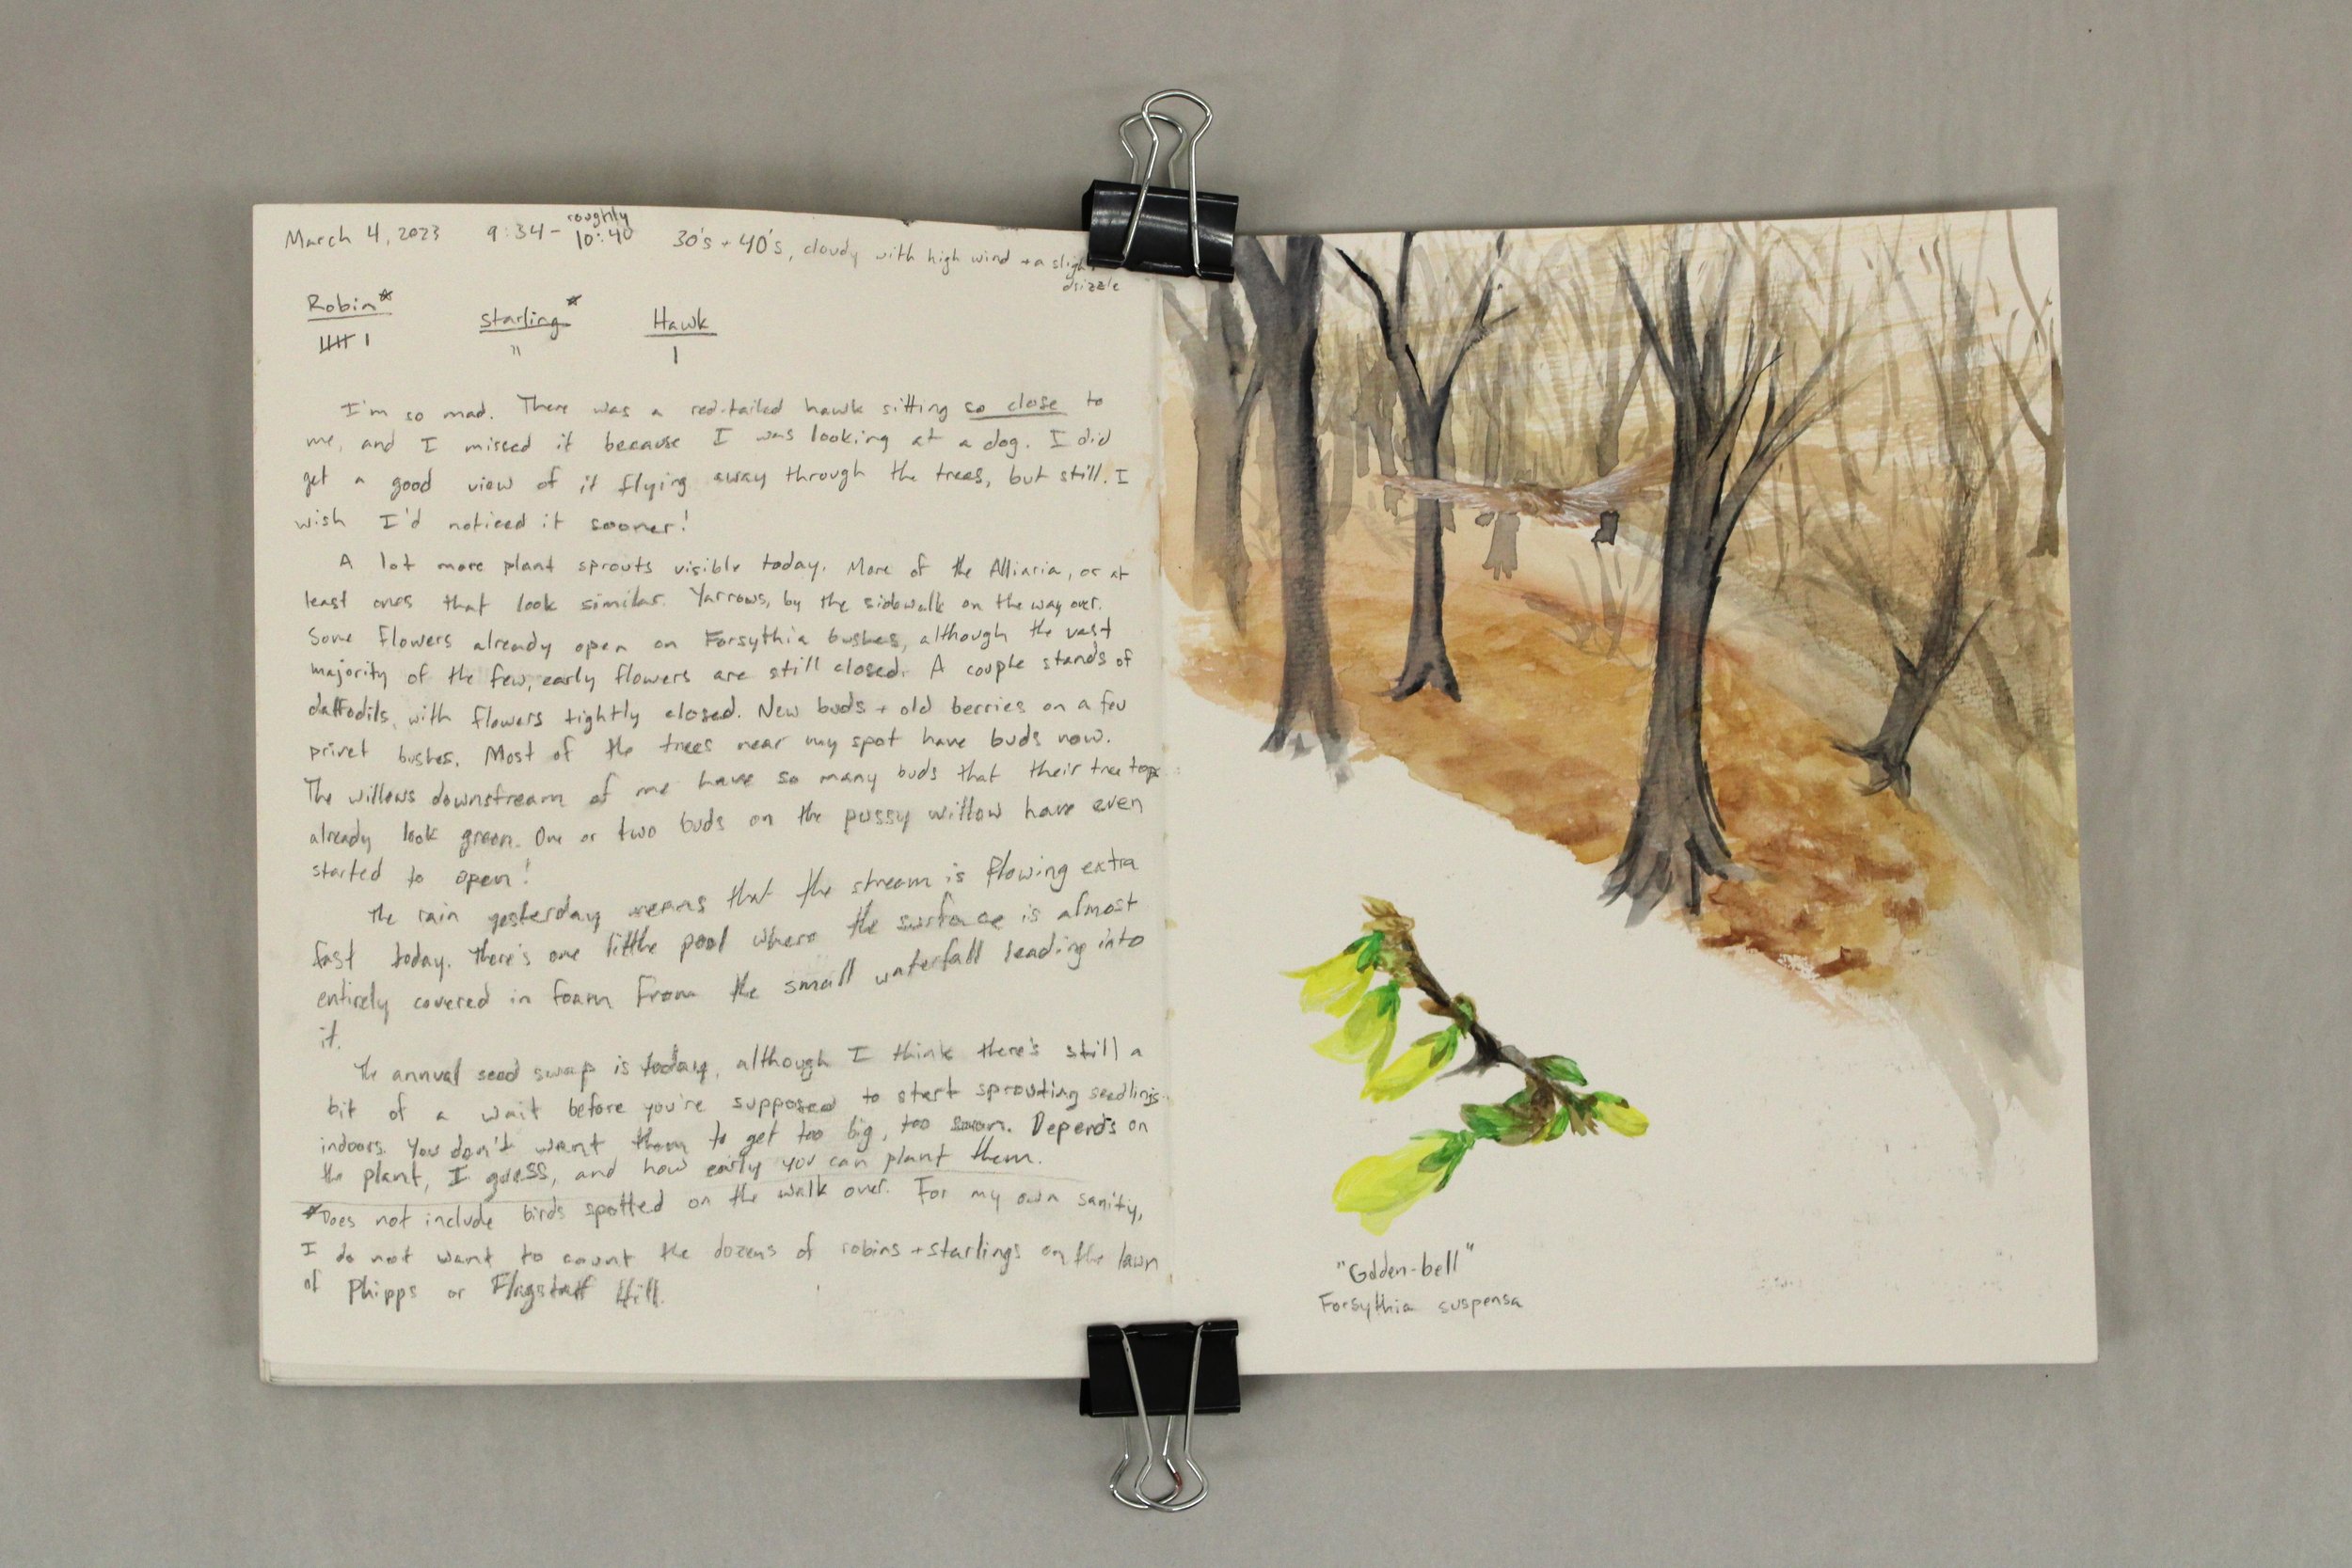 March 4, 2023 9:34 - roughly 10:40 30's + 40's, cloudy with high wind + a slight drizzle
Robin* Starling* Hawk
I'm so mad. There was a red-tailed hawk sitting so close to
me, and I missed it because I was looking at a dog. I did
get a good view of it flying away through the trees, but still. I
wish I'd noticed it sooner!
A lot more plant sprouts visible today. More of the Alliaria, or at
least ones that look similar. Yarrows, by the sidewalk on the way over.
Some flowers already open on Forsythia bushes, although the vast
majority of the few, early flowers are still closed. A couple stands of
daffodils, with flowers tightly closed. New buds + old berries on a few
privet bushes. Most of the trees near my spot have buds now.
The willows downstream of me have so many buds that their tree tops
already look green. One or two buds on the pussy willow have even
started to open!
The rain yesterday means that the stream is flowing extra
fast today. There's one little pool where the surface is almost
entirely covered in foam from the small waterfall leading into
it.
The annual seed swap is today, although I think there's still a
bit of a wait before you're supposed to start sprouting seedlings
indoors. You don't want them to get too big, too soon. Depends on
the plant, I guess, and how early you can plant them.
*Does not include birds spotted on the walk over. For my own sanity,
I do not want to count the dozens of robins + starlings on the lawn
of Phipps or Flagstaff Hill.
"Golden-bell"
Forsythia suspensa